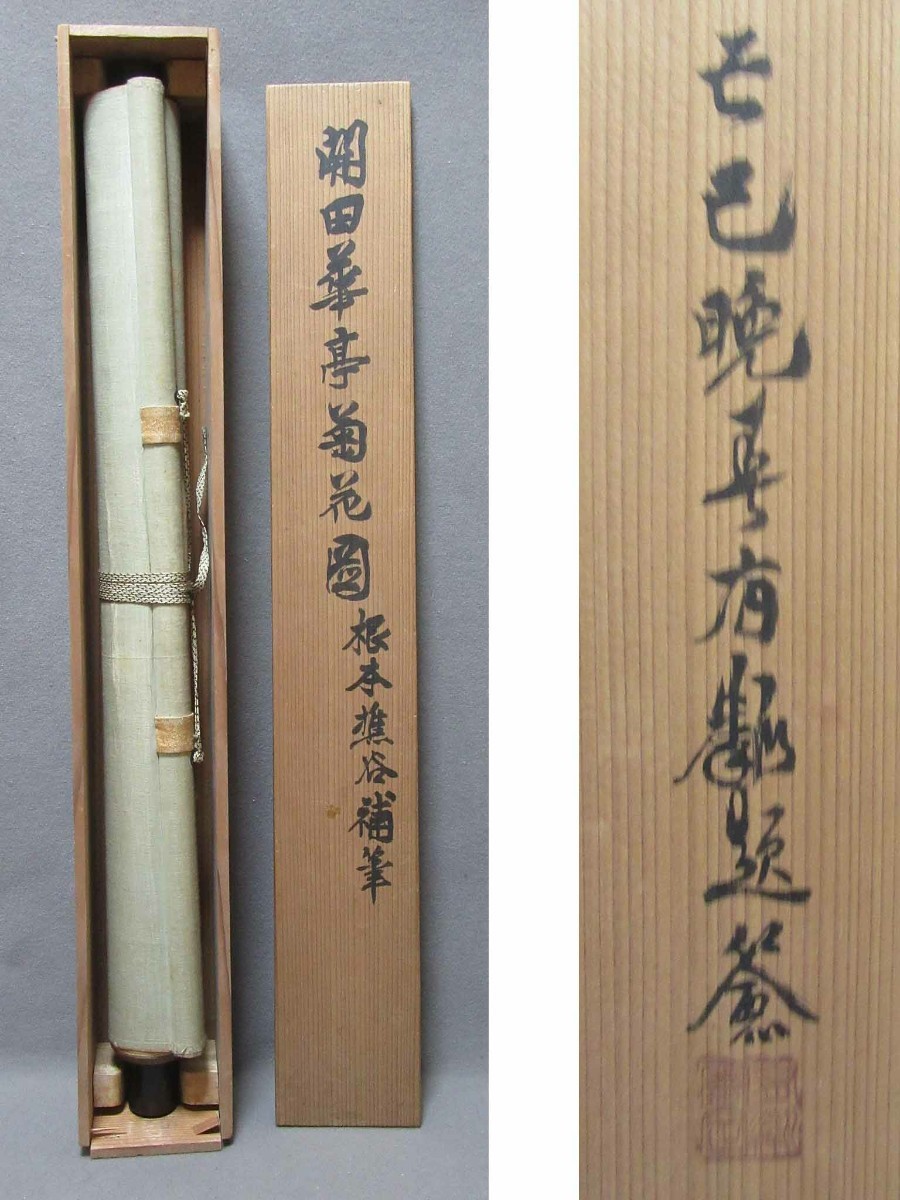 開田華亭菊花圖
根本樵谷補筆
己巳晩春有題簽